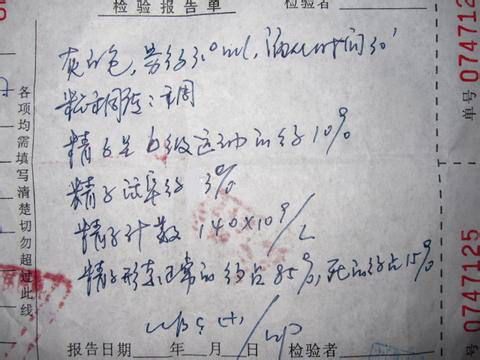 检验报告单 检验者
灰白色，量约3.0ml，液化时间30'
粘稠度：
精子呈b级运动的约10%
精子活率约3%
精子计数 140×10⁹/L
精子形态正常的约占85%，死的约占15%
WBC(+)/HP
报告日期 年 月 日 检验者
各项均需填写清楚切勿超过此线
单号 0747125
0747125